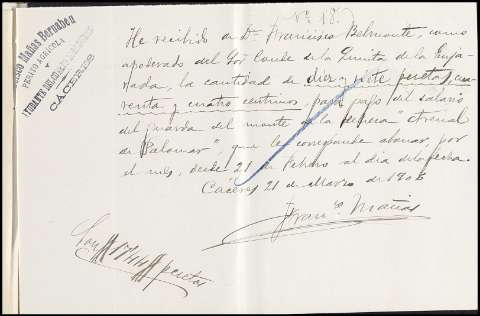 Nº 18.
Francisco Mañas Bernabeu
PERITO AGRÍCOLA
CÁCERES
He recibido de Dn Francisco Belmonte, como
apoderado del Sor Conde de la Quinta de la Enja
rada, la cantidad de diez y siete pesetas cua
renta y cuatro centimos, para pago del salario
del guarda del monte de la dehesa "Arenal
de Palomar", que le corresponde abonar, por
el mes, desde 21 de Febrero al dia de la fecha.
Cáceres 21 de Marzo de 1908
Franco Mañas
Son 17'44 pesetas